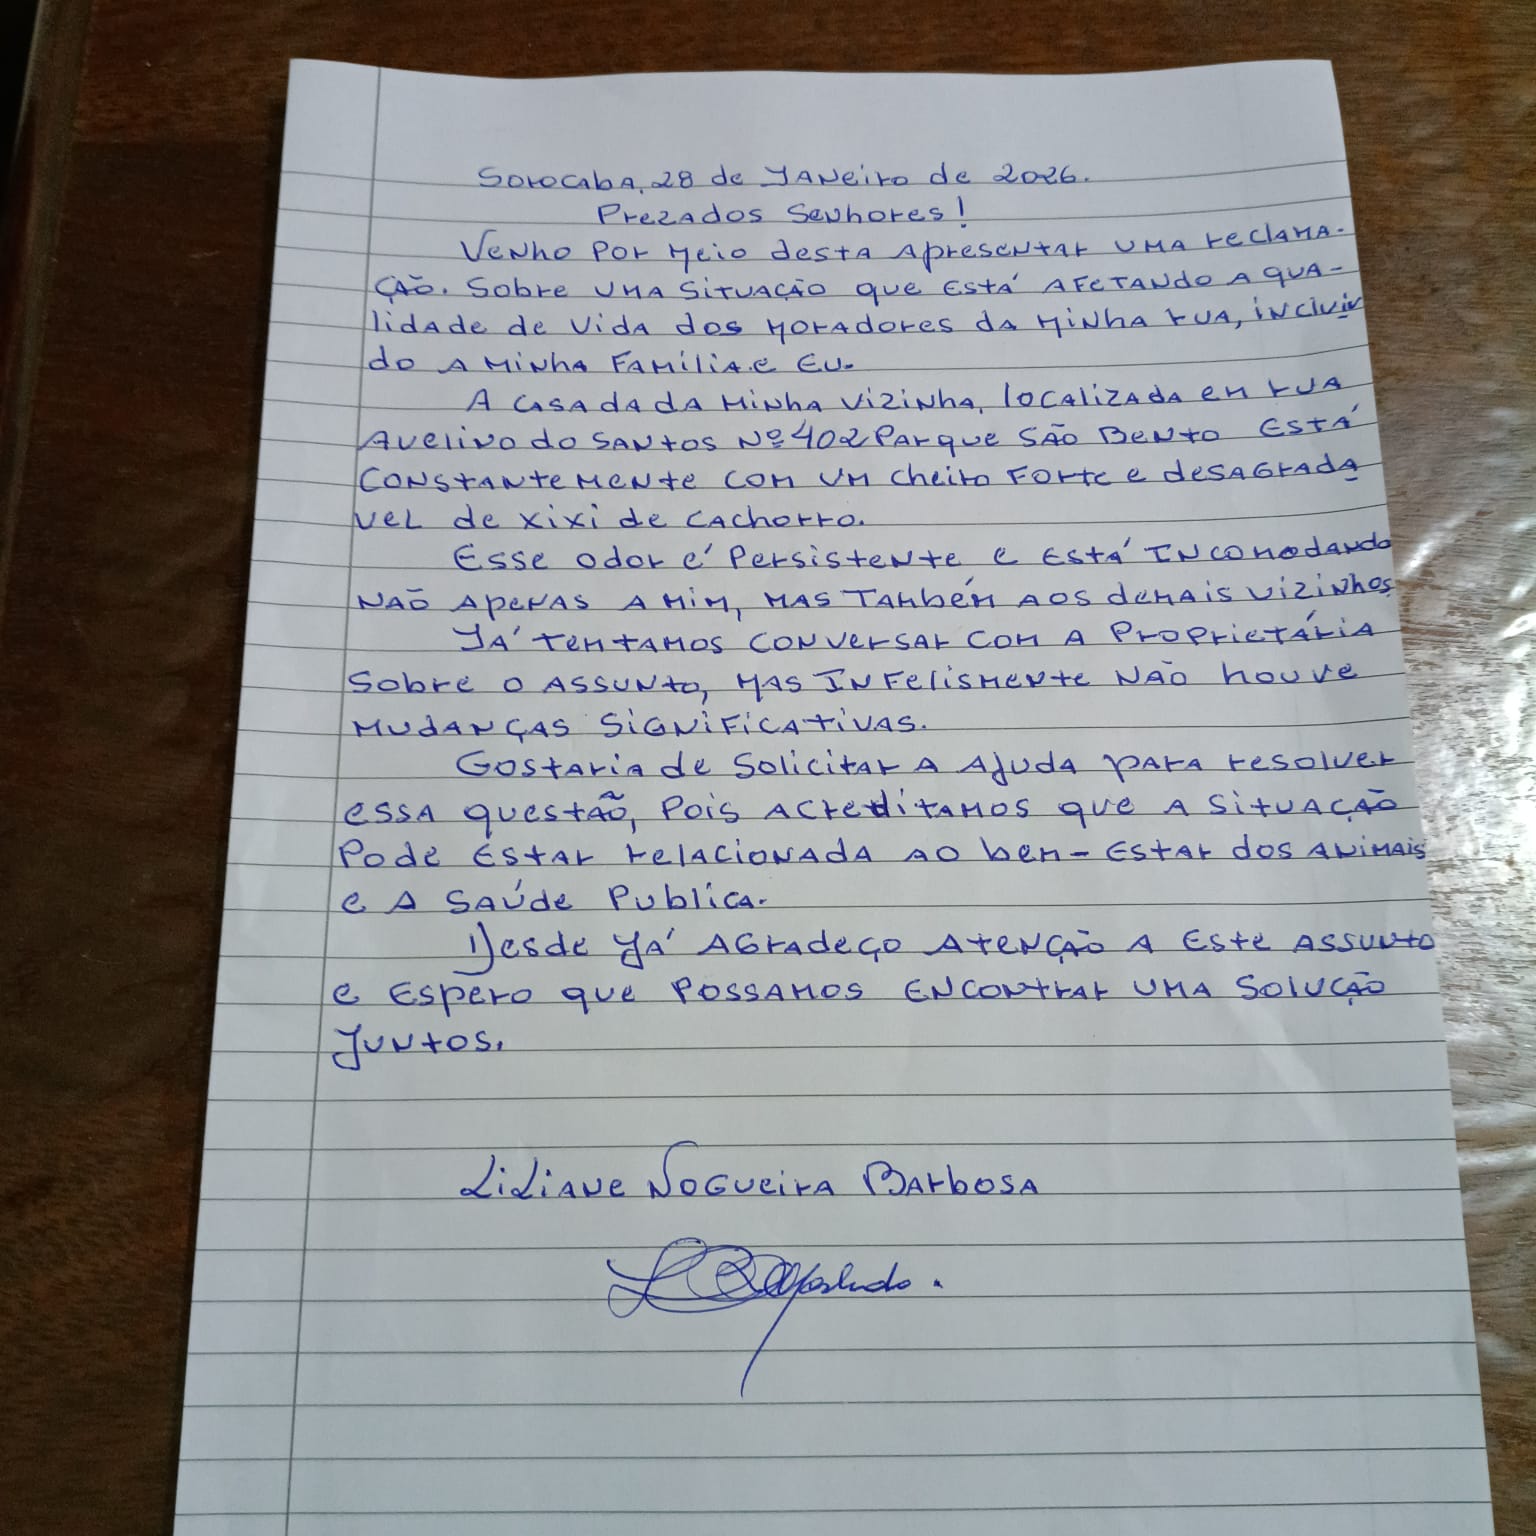 Sorocaba, 28 de Janeiro de 2026.
Prezados Senhores!
Venho por meio desta apresentar uma reclama-
ção. Sobre uma situação que está afetando a qua-
lidade de vida dos moradores da minha rua, incluin
do a minha família.e eu.
A casa da da minha vizinha, localizada em rua
Avelino do Santos Nº 402 Parque São Bento está
constantemente com um cheiro forte e desagradá
vel de xixi de cachorro.
Esse odor é persistente e está incomodando
não apenas a mim, mas também aos demais vizinhos.
Já tentamos conversar com a proprietária
sobre o assunto, mas infelismente não houve
mudanças significativas.
Gostaria de solicitar a ajuda para resolver
essa questão, pois acreditamos que a situação
pode estar relacionada ao bem-estar dos animais
e a saúde publica.
Desde já agradeço atenção a este assunto
e espero que possamos encontrar uma solução
juntos.
Liliane Nogueira Barbosa